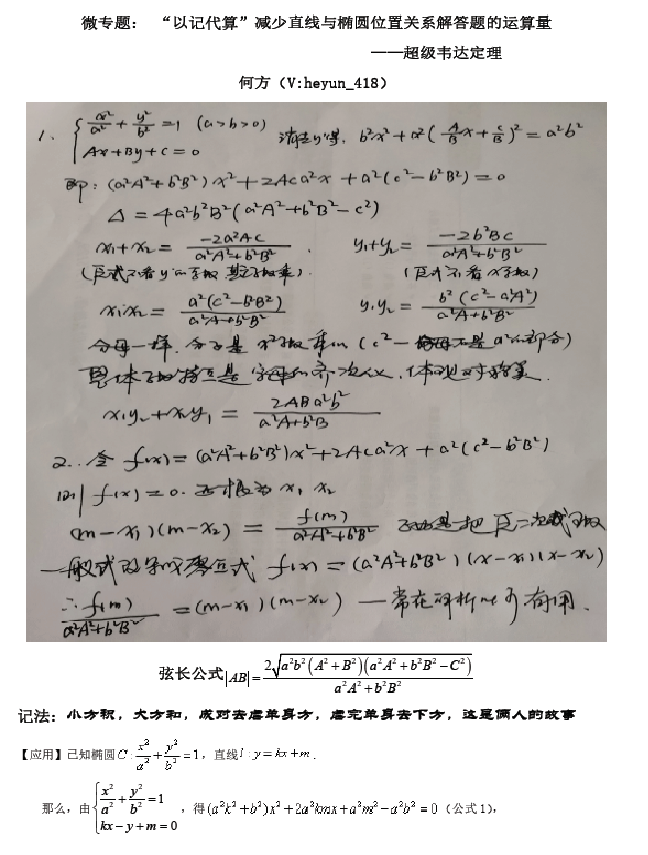 微专题： “以记代算”减少直线与椭圆位置关系解答题的运算量
——超级韦达定理
何方（V:heyun_418）
1. { x²/a² + y²/b² = 1 (a>b>0) 消去y得, b²x² + a²(A/B x + C/B)² = a²b²
Ax+By+C=0
即: (a²A²+b²B²)x² + 2ACa²x + a²(C²-b²B²) = 0
Δ = 4a²b²B²(a²A²+b²B²-C²)
x₁+x₂ = -2a²AC/(a²A²+b²B²) , y₁+y₂ = -2b²BC/(a²A²+b²B²)
x₁x₂ = a²(C²-b²B²)/(a²A²+b²B²) y₁y₂ = b²(C²-a²A²)/(a²A²+b²B²)
分母一样, 分子是
x₁y₂+x₂y₁ = 2ABa²b²/(a²A²+b²B)
2. 令 f(x) = (a²A²+b²B²)x² + 2ACa²x + a²(C²-b²B²)
则 f(x)=0. x₁ x₂
(m-x₁)(m-x₂) = f(m)/(a²A²+b²B²)
一般式 零点式 f(x) = (a²A²+b²B²)(x-x₁)(x-x₂)
∴ f(m)/(a²A²+b²B²) = (m-x₁)(m-x₂) — 常在 有用.
弦长公式|AB| = 2√(a²b²(A²+B²)(a²A²+b²B²-C²))/(a²A²+b²B²)
记法：小方积，大方和，成对去虐单身方，虐完单身去下方，这是俩人的故事
【应用】已知椭圆C: x²/a² + y²/b² = 1，直线l: y = kx + m.
那么，由{ x²/a² + y²/b² = 1, kx - y + m = 0 ，得(a²k² + b²)x² + 2a²kmx + a²m² - a²b² = 0（公式1），